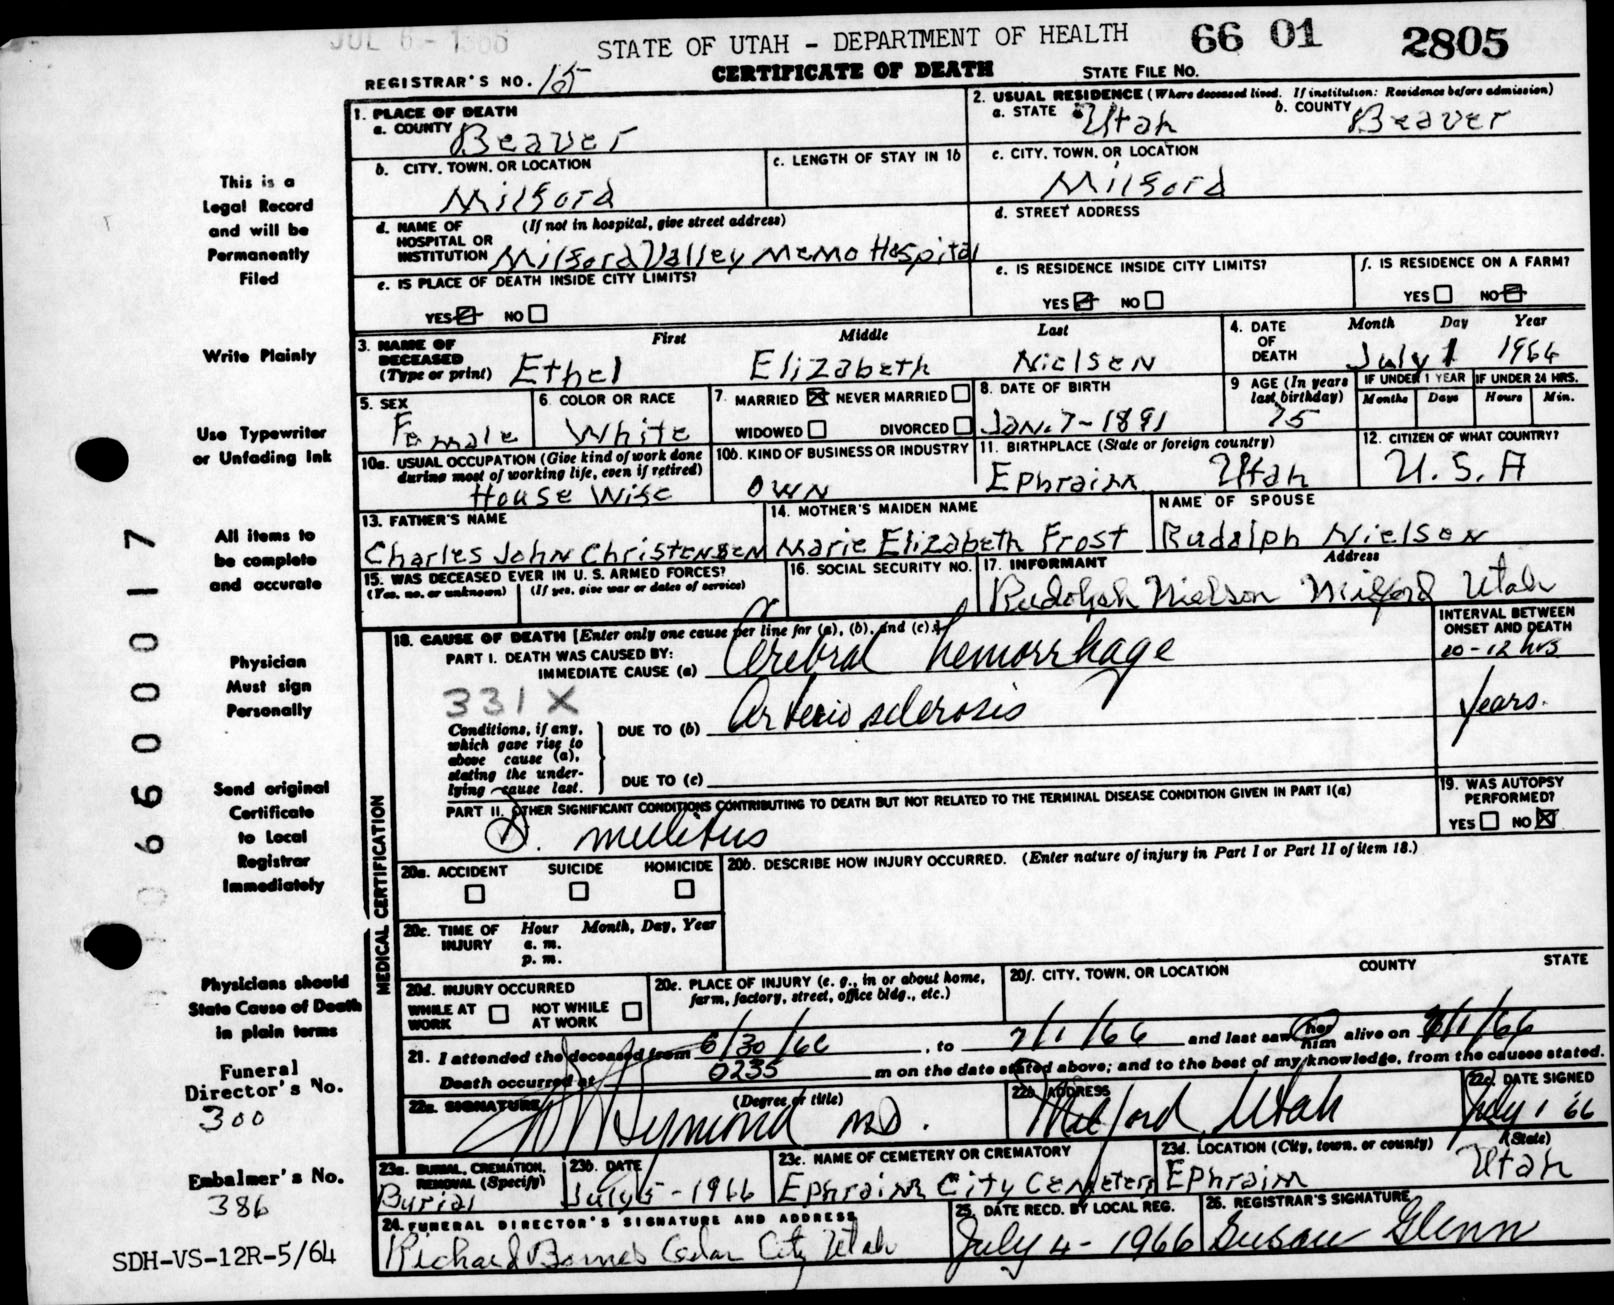 JUL 6 - 1966
STATE OF UTAH - DEPARTMENT OF HEALTH 66 01 2805
CERTIFICATE OF DEATH
REGISTRAR'S NO. 15 STATE FILE NO.
1. PLACE OF DEATH
a. COUNTY Beaver
2. USUAL RESIDENCE (Where deceased lived. If institution: Residence before admission)
a. STATE Utah b. COUNTY Beaver
b. CITY, TOWN, OR LOCATION Milford
c. LENGTH OF STAY IN 1b
c. CITY, TOWN, OR LOCATION Milford
d. NAME OF HOSPITAL OR INSTITUTION (If not in hospital, give street address)
Milford Valley Memo Hospital
d. STREET ADDRESS
e. IS PLACE OF DEATH INSIDE CITY LIMITS?
YES NO
e. IS RESIDENCE INSIDE CITY LIMITS?
YES NO
f. IS RESIDENCE ON A FARM?
YES NO
3. NAME OF DECEASED (Type or print)
First Middle Last
Ethel Elizabeth Nielsen
4. DATE OF DEATH
Month Day Year
July 1 1966
5. SEX
Female
6. COLOR OR RACE
White
7. MARRIED NEVER MARRIED
WIDOWED DIVORCED
8. DATE OF BIRTH
Jan. 7 - 1891
9 AGE (In years last birthday)
75
IF UNDER 1 YEAR
Months Days
IF UNDER 24 HRS.
Hours Min.
10a. USUAL OCCUPATION (Give kind of work done during most of working life, even if retired)
House Wife
10b. KIND OF BUSINESS OR INDUSTRY
OWN
11. BIRTHPLACE (State or foreign country)
Ephraim Utah
12. CITIZEN OF WHAT COUNTRY?
U.S.A
13. FATHER'S NAME
Charles John Christensen
14. MOTHER'S MAIDEN NAME
Marie Elizabeth Frost
NAME OF SPOUSE
Rudolph Nielsen
15. WAS DECEASED EVER IN U.S. ARMED FORCES?
(Yes, no, or unknown) (If yes, give war or dates of service)
16. SOCIAL SECURITY NO.
17. INFORMANT Address
Rudolph Nielson Milford Utah
18. CAUSE OF DEATH [Enter only one cause per line for (a), (b), and (c).]
INTERVAL BETWEEN ONSET AND DEATH
PART I. DEATH WAS CAUSED BY:
IMMEDIATE CAUSE (a) Cerebral hemorrhage 10-12 hrs
331 X
Conditions, if any, which gave rise to above cause (a), stating the underlying cause last.
DUE TO (b) Arteriosclerosis years.
DUE TO (c)
PART II. OTHER SIGNIFICANT CONDITIONS CONTRIBUTING TO DEATH BUT NOT RELATED TO THE TERMINAL DISEASE CONDITION GIVEN IN PART I(a)
D. mellitus
19. WAS AUTOPSY PERFORMED?
YES NO
MEDICAL CERTIFICATION
20a. ACCIDENT SUICIDE HOMICIDE
20b. DESCRIBE HOW INJURY OCCURRED. (Enter nature of injury in Part I or Part II of item 18.)
20c. TIME OF INJURY
Hour Month, Day, Year
a. m.
p. m.
20d. INJURY OCCURRED
WHILE AT WORK NOT WHILE AT WORK
20e. PLACE OF INJURY (e. g., in or about home, farm, factory, street, office bldg., etc.)
20f. CITY, TOWN, OR LOCATION COUNTY STATE
21. I attended the deceased from 6/30/66, to 7/1/66 and last saw her him alive on 7/1/66
Death occurred at 0235 m on the date stated above; and to the best of my knowledge, from the causes stated.
22a. SIGNATURE (Degree or title)
Symond M.D.
22b. ADDRESS
Milford, Utah
22c. DATE SIGNED
July 1 '66
23a. BURIAL, CREMATION, REMOVAL (Specify)
Burial
23b. DATE
July 5 - 1966
23c. NAME OF CEMETERY OR CREMATORY
Ephraim City Cemetery
23d. LOCATION (City, town, or county) (State)
Ephraim Utah
24. FUNERAL DIRECTOR'S SIGNATURE AND ADDRESS
Richard Cedar City Utah
25. DATE RECD. BY LOCAL REG.
July 4 - 1966
26. REGISTRAR'S SIGNATURE
Susan Glenn
This is a
Legal Record
and will be
Permanently
Filed
Write Plainly
Use Typewriter
or Unfading Ink
All items to
be complete
and accurate
Physician
Must sign
Personally
Send original
Certificate
to Local
Registrar
Immediately
Physicians should
State Cause of Death
in plain terms
Funeral
Director's No.
300
Embalmer's No.
386
SDH-VS-12R-5/64
0 6 6 0 0 0 1 7